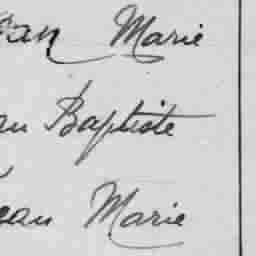 ean Marie
an Baptiste
ean Marie